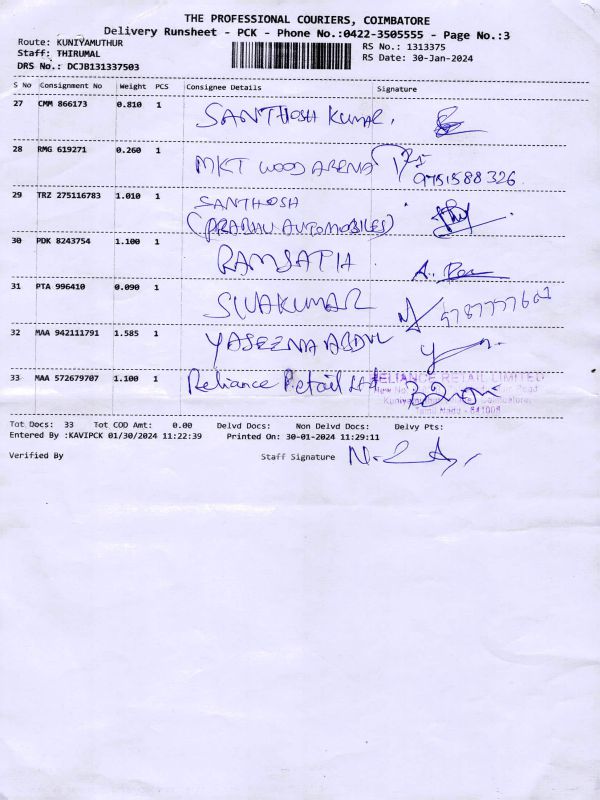 THE PROFESSIONAL COURIERS, COIMBATORE
Delivery Runsheet - PCK - Phone No.:0422-3505555 - Page No.:3
Route: KUNIYAMUTHUR
Staff: THIRUMAL
DRS No.: DCJB131337503
RS No.: 1313375
RS Date: 30-Jan-2024
S No Consignment No Weight PCS Consignee Details Signature
27 CMM 866173 0.810 1 SANTHOSH KUMAR.
28 RMG 619271 0.260 1 MKT WOOD ARENA
9751588326
29 TRZ 275116783 1.010 1 SANTHOSH
(PRABHU AUTOMOBILES)
30 PDK 8243754 1.100 1 RAMSATH
31 PTA 996410 0.090 1 SIVAKUMAR
32 MAA 942111791 1.585 1 YASEENA ABDUL
33 MAA 572679707 1.100 1 Reliance Retail Ltd
RELIANCE RETAIL LIMITED
Tamil Nadu - 641008
Tot Docs: 33 Tot COD Amt: 0.00 Delvd Docs: Non Delvd Docs: Delvy Pts:
Entered By :KAVIPCK 01/30/2024 11:22:39 Printed On: 30-01-2024 11:29:11
Verified By Staff Signature